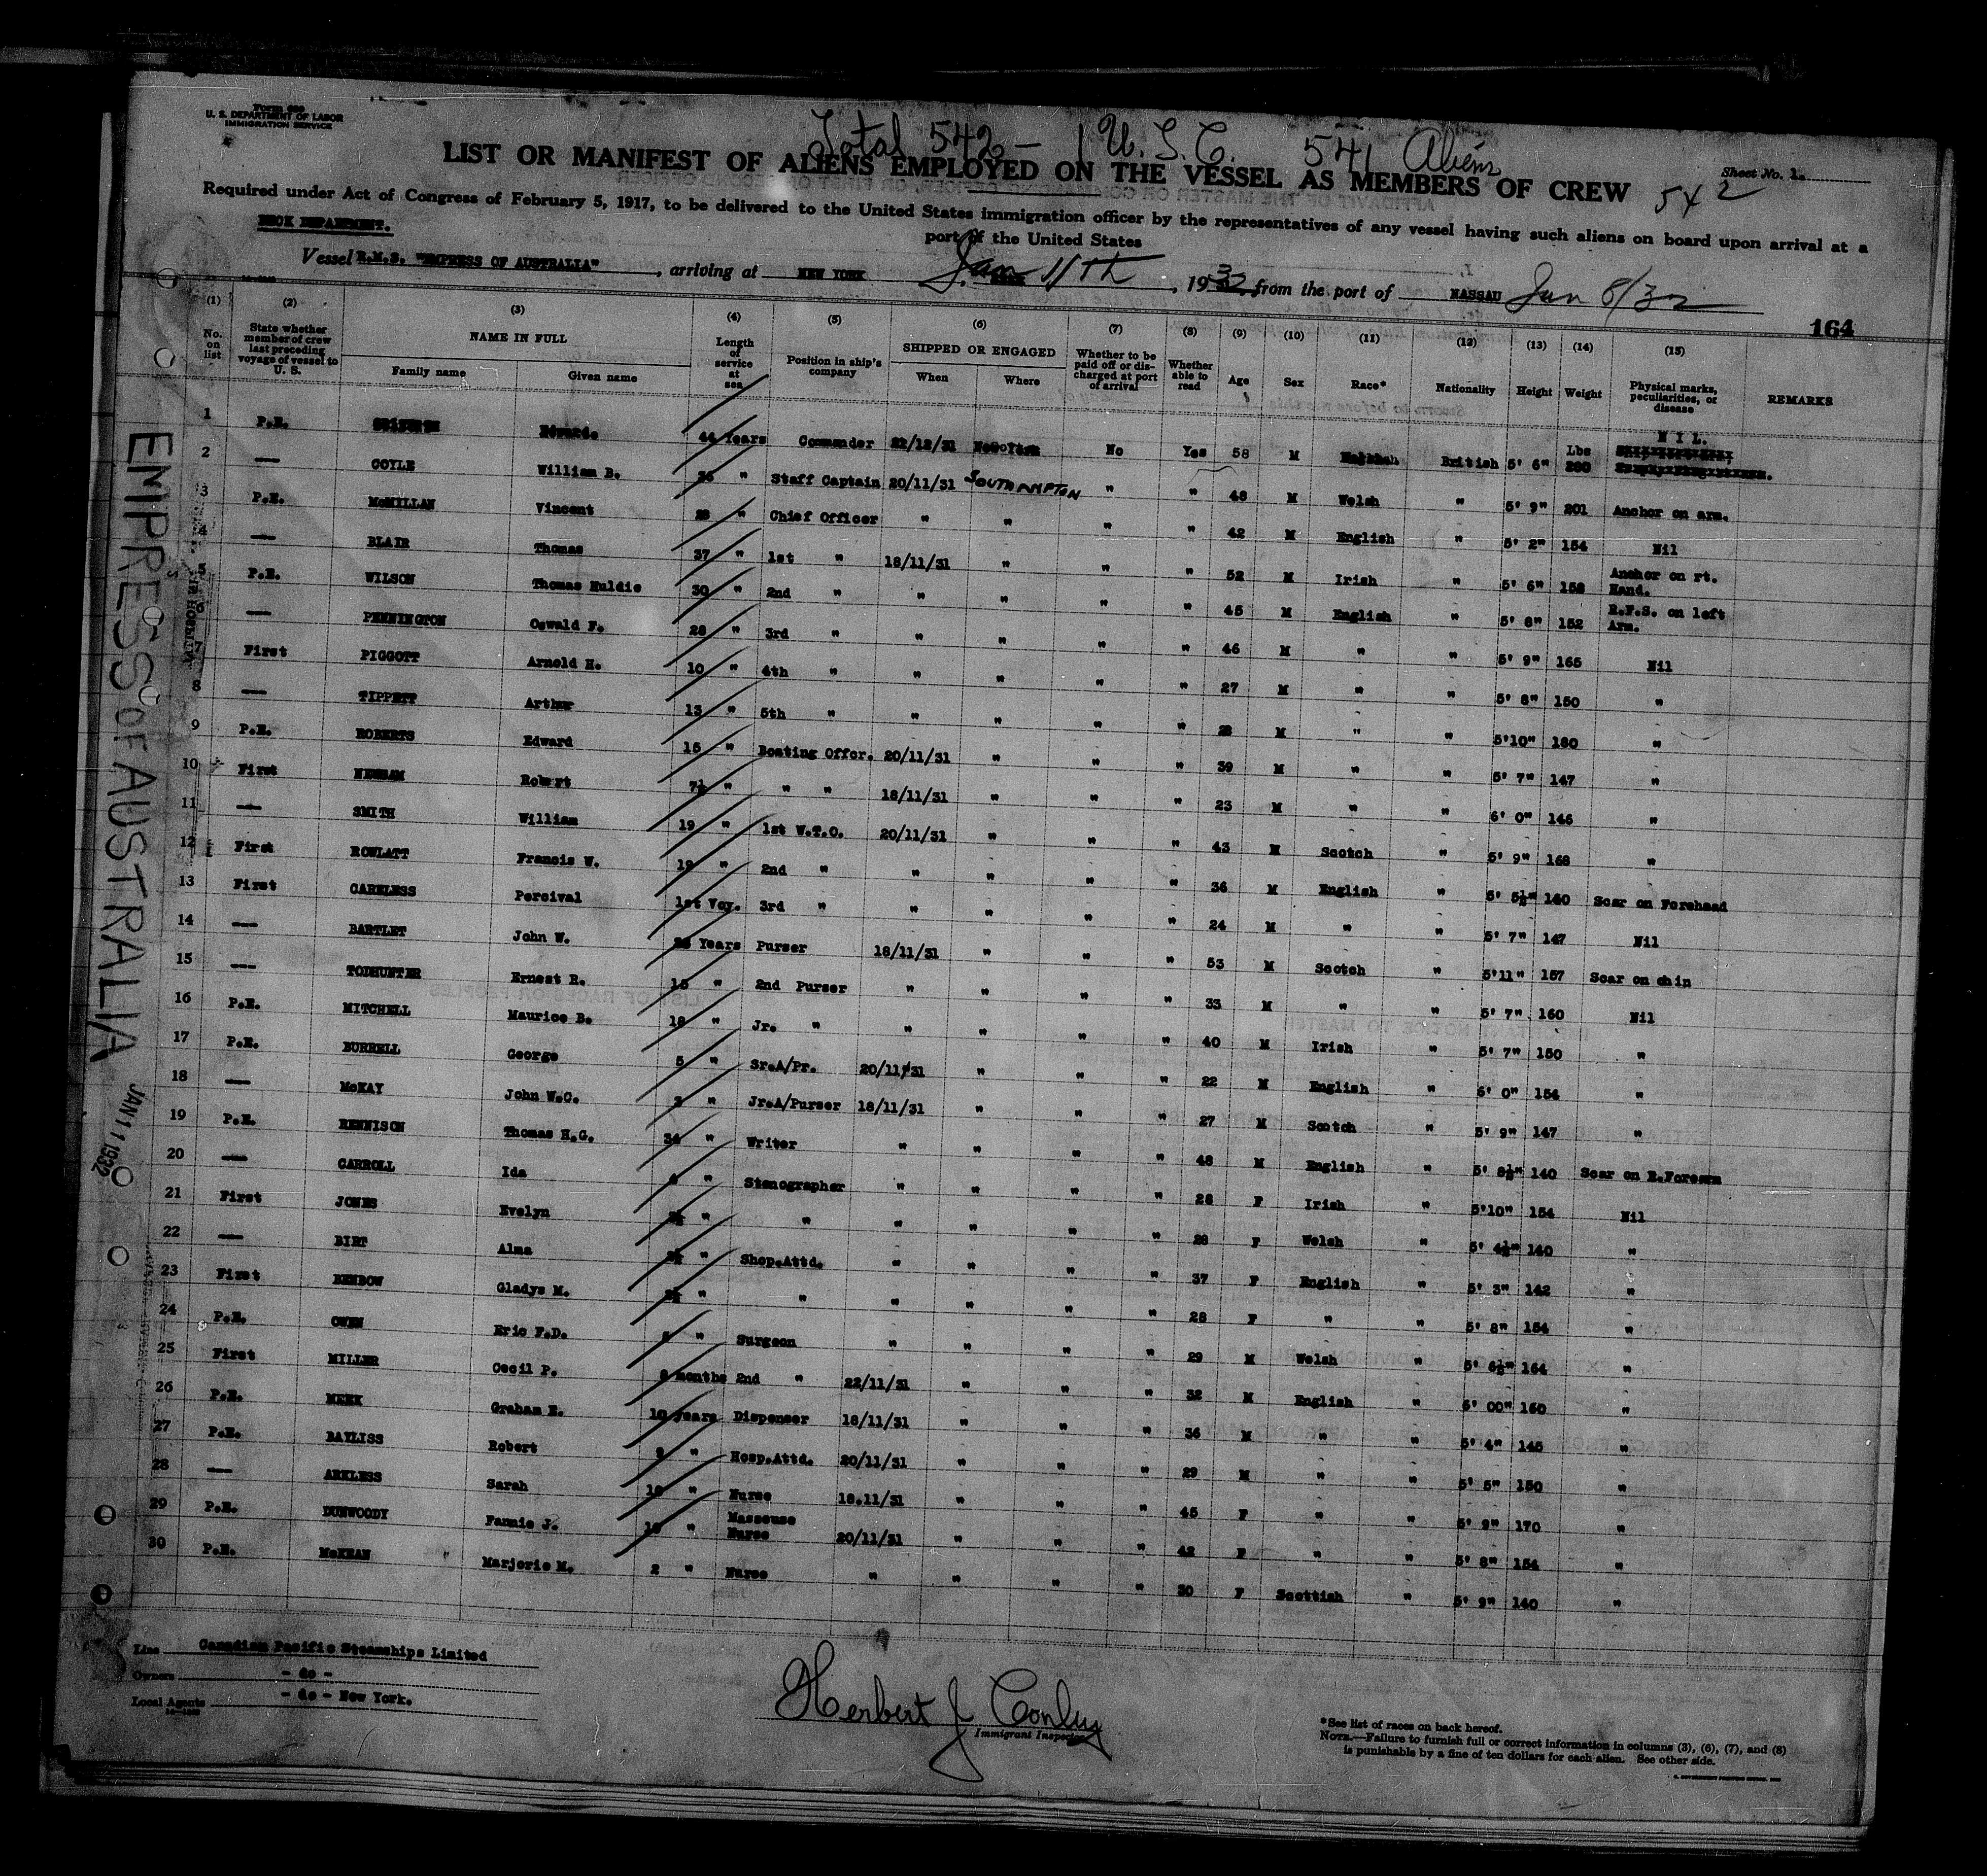 Form 689
U. S. DEPARTMENT OF LABOR
IMMIGRATION SERVICE
Total 542 - 1 U.S.C. 541 Aliens
LIST OR MANIFEST OF ALIENS EMPLOYED ON THE VESSEL AS MEMBERS OF CREW
Sheet No. 1.
542
Required under Act of Congress of February 5, 1917, to be delivered to the United States immigration officer by the representatives of any vessel having such aliens on board upon arrival at a
port of the United States
DECK DEPARTMENT.
Vessel R.M.S. "EMPRESS OF AUSTRALIA", arriving at NEW YORK Jan 11th, 1932, from the port of NASSAU Jan 8/32
164
(1) (2) (3) (4) (5) (6) (7) (8) (9) (10) (11) (12) (13) (14) (15)
No. on list State whether member of crew last preceding voyage of vessel to U. S. NAME IN FULL Family name Given name Length of service at sea Position in ship's company SHIPPED OR ENGAGED When Where Whether to be paid off or discharged at port of arrival Whether able to read Age Sex Race* Nationality Height Weight Physical marks, peculiarities, or disease REMARKS
1 P.E. Edward. 44 Years Commander 22/12/31 New York No Yes 58 M British 5' 6" Lbs NIL.
2 — COYLE William B. " Staff Captain 20/11/31 SOUTHAMPTON " " 48 M Welsh " 5' 9" 201 Anchor on arm.
3 P.E. McMILLAN Vincent 28 " Chief Officer " " " " 42 M English " 5' 2" 154 Nil
4 — BLAIR Thomas 37 " 1st " 18/11/31 " " " 52 M Irish " 5' 6" 158 Anchor on rt. Hand.
5 P.E. WILSON Thomas Muldie 30 " 2nd " " " " " 45 M English " 5' 8" 152 R.F.S. on left Arm.
6 — PENNINGTON Oswald F. 28 " 3rd " " " " " 46 M " " 5' 9" 165 Nil
7 First PIGGOTT Arnold H. 10 " 4th " " " " " 27 M " " 5' 8" 150 "
8 — TIPPETT Arthur 13 " 5th " " " " " M " " 5'10" 180 "
9 P.E. ROBERTS Edward 15 " Boating Offcr. 20/11/31 " " " 39 M " " 5' 7" 147 "
10 First Robert 7½ " " " 18/11/31 " " " 23 M " " 6' 0" 146 "
11 — SMITH William 19 " 1st W.T.O. 20/11/31 " " " 43 M Scotch " 5' 9" 168 "
12 First ROWLATT Francis W. 19 " 2nd " " " " " 36 M English " 5' 5½" 140 Scar on Forehead
13 First CARELESS Percival 1st Voy. 3rd " " " " " 24 M " " 5' 7" 147 Nil
14 — BARTLET John W. Years Purser 18/11/31 " " " 53 M Scotch " 5'11" 157 Scar on chin
15 — TODHUNTER Ernest R. 15 " 2nd Purser " " " " 33 M " " 5' 7" 160 Nil
16 P.E. MITCHELL Maurice B. 18 " Jr. " " " " " 40 M Irish " 5' 7" 150 "
17 P.E. BURRELL George 5 " Sr.A/Pr. 20/11/31 " " " 22 M English " 6' 0" 154 "
18 — McKAY John W.C. " Jr.A/Purser 18/11/31 " " " 27 M Scotch " 5' 9" 147 "
19 P.E. RENNISON Thomas H.G. 34 " Writer " " " " 48 M English " 5' 8½" 140 Scar on R.Forearm
20 — CARROLL Ida " Stenographer " " " " 28 F Irish " 5'10" 154 Nil
21 First JONES Evelyn " " " " " " 28 F Welsh " 5' 4½" 140 "
22 — BIRT Alma " Shop.Attd. " " " " 37 F English " 5' 3" 142 "
23 First BENBOW Gladys M. " " " " " " 28 F " " 5' 8" 154 "
24 P.E. OWEN Eric F.D. " Surgeon " " " " 29 M Welsh " 5' 6½" 164 "
25 First MILLER Cecil P. months 2nd " 22/11/31 " " " 32 M English " 6' 00" 160 "
26 P.E. MEEK Graham E. 10 years Dispenser 18/11/31 " " " 36 M " " 5' 4" 145 "
27 P.E. BAYLISS Robert " Hosp.Attd. 20/11/31 " " " 29 M " " 5' 5" 150 "
28 — ARKLESS Sarah " Nurse 18.11/31 " " " 45 F " " 5' 9" 170 "
29 P.E. DUNWOODY Fannie J. " Masseuse Nurse 20/11/31 " " " 42 F " " 5' 8" 154 "
30 P.E. McKEAN Marjorie M. 2 " Nurse " " " " 30 F Scottish " 5' 9" 140 "
EMPRESS OF AUSTRALIA
JAN 11 1932
Line Canadian Pacific Steamships Limited
Owners - do -
Local Agents - do - New York.
Herbert J Conley
Immigrant Inspector
*See list of races on back hereof.
NOTE.—Failure to furnish full or correct information in columns (3), (6), (7), and (8)
is punishable by a fine of ten dollars for each alien. See other side.